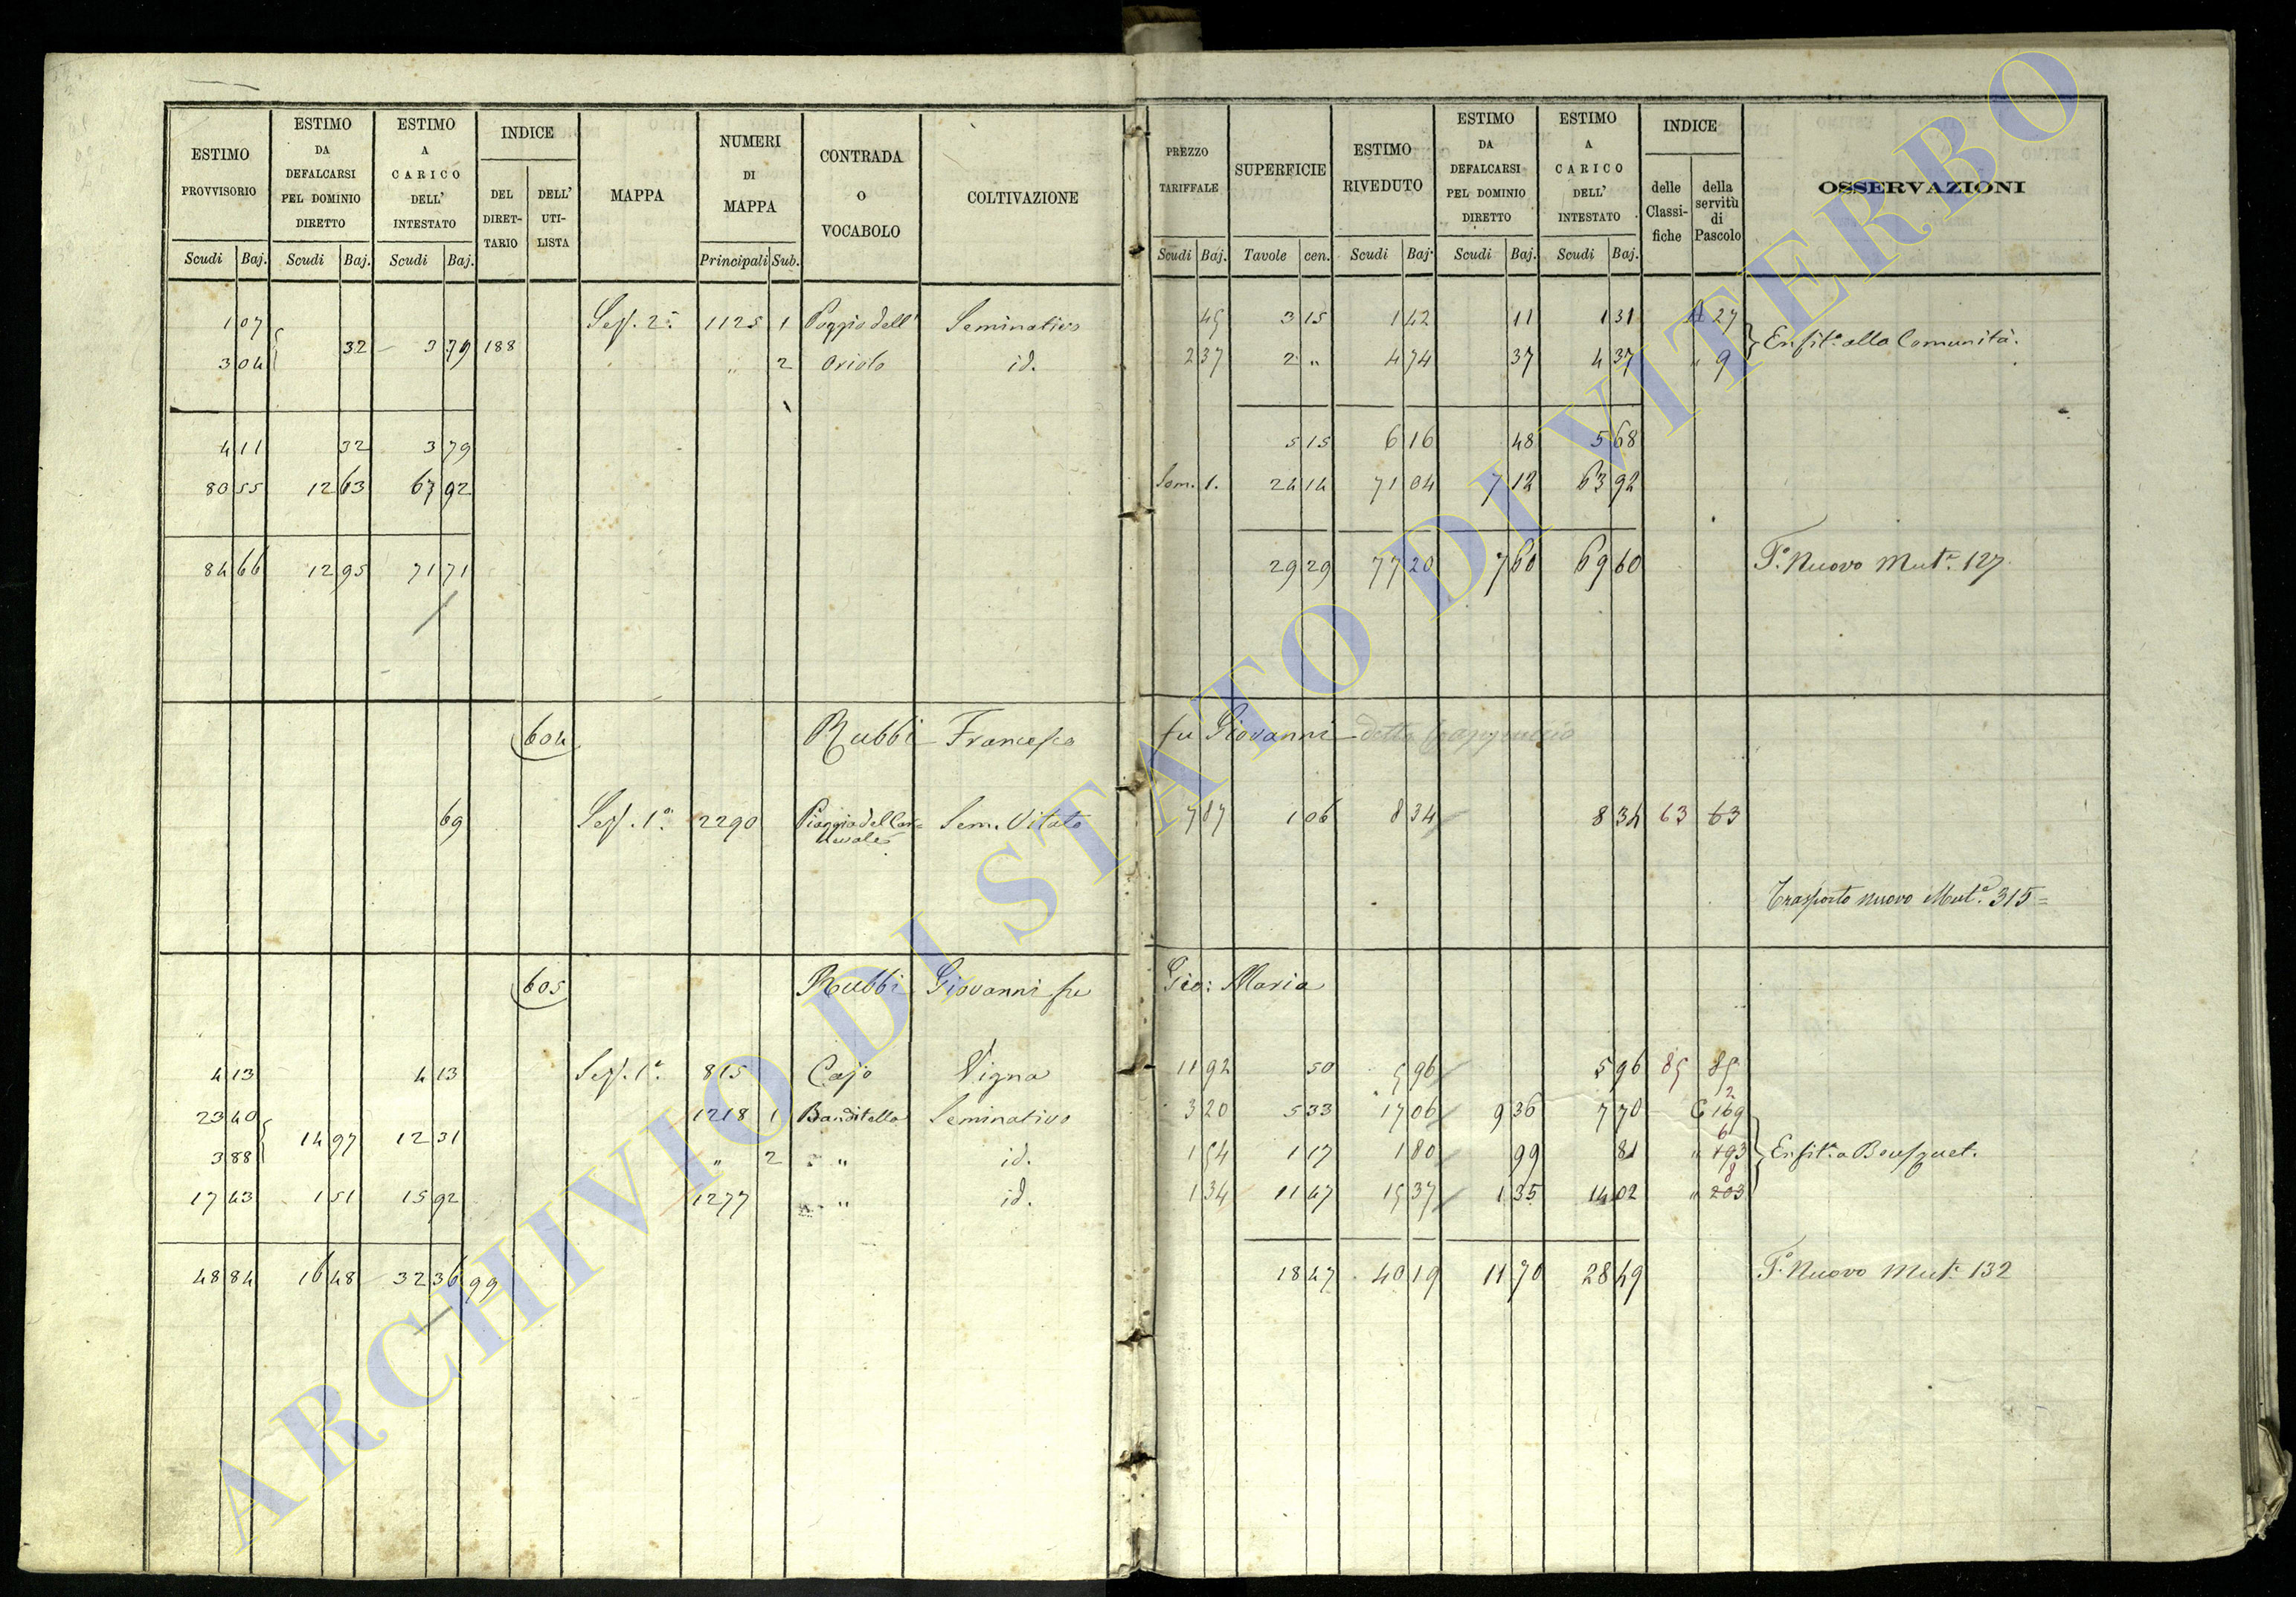 ESTIMO PROVVISORIO | ESTIMO DA DEFALCARSI PEL DOMINIO DIRETTO | ESTIMO A CARICO DELL' INTESTATO | INDICE | MAPPA | NUMERI DI MAPPA | CONTRADA O VOCABOLO | COLTIVAZIONE | PREZZO TARIFFALE | SUPERFICIE | ESTIMO RIVEDUTO | ESTIMO DA DEFALCARSI PEL DOMINIO DIRETTO | ESTIMO A CARICO DELL' INTESTATO | INDICE | OSSERVAZIONI
DEL DIRETTARIO | DELL' UTILISTA | delle Classifiche | della servitù di Pascolo
Scudi | Baj. | Scudi | Baj. | Scudi | Baj. | Principali | Sub. | Scudi | Baj. | Tavole | cen. | Scudi | Baj. | Scudi | Baj. | Scudi | Baj.
1 07 | 32 | 3 79 | 188 | Sez. 2ª | 1125 | 1 | Poggio dell' | Seminativo | 45 | 3 15 | 1 42 | 11 | 1 31 | A 27 | Enfit.ª alla Comunità.
3 04 | " | 2 | Oriolo | id. | 2 37 | 2 " | 4 74 | 37 | 4 37 | " 9
4 11 | 32 | 3 79 | 5 15 | 6 16 | 48 | 5 68
80 55 | 12 63 | 67 92 | Som. 1. | 24 14 | 71 04 | 7 12 | 63 92
84 66 | 12 95 | 71 71 | 29 29 | 77 20 | 7 60 | 69 60 | T.º Nuovo Mut.ª 127
604 | Rubbi Francesco fu Giovanni detto
69 | Sez. 1ª | 2290 | Sem. Vitato | 7 87 | 1 06 | 8 34 | 8 34 | 63 | 63
Trasporto nuovo Mut.ª 315 =
605 | Rubbi Giovanni fu Gio: Maria
4 13 | 4 13 | Sez. 1ª | 815 | Cajo | Vigna | 11 92 | 50 | 5 96 | 5 96 | 85 | 85
23 40 | 14 97 | 12 31 | 1218 | 1 | Banditella | Seminativo | 3 20 | 5 33 | 17 06 | 9 36 | 7 70 | C 169 | 2
3 88 | " | 2 | " | id. | 1 54 | 1 17 | 1 80 | 99 | 81 | " 193 | 6 | Enfit.ª a Bousquet.
17 43 | 1 51 | 15 92 | 1277 | " | id. | 1 34 | 11 47 | 15 37 | 1 35 | 14 02 | " 203 | 8
48 84 | 16 48 | 32 36 | 99 | 18 47 | 40 19 | 11 70 | 28 49 | T.º Nuovo Mut.ª 132
ARCHIVIO DI STATO DI VITERBO